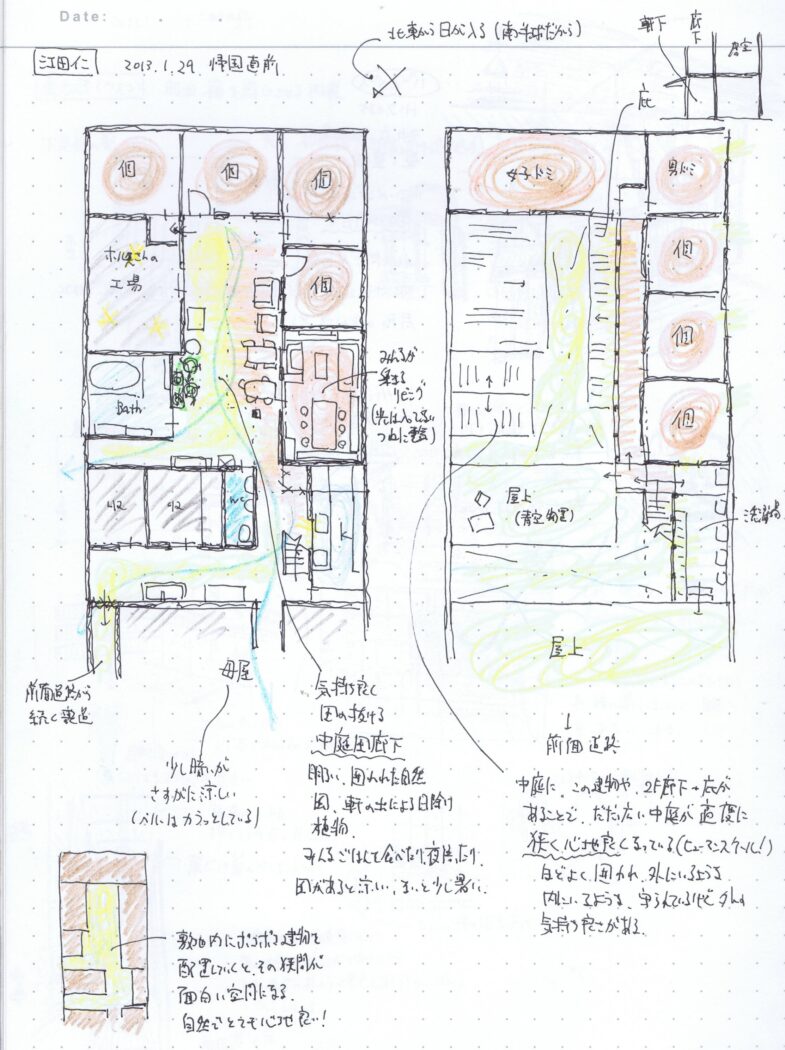 Date:
江田仁 2013.1.29. 帰国直前
北東から日が入る(南半球だから)
軒下
廊下
居室
庇
個
個
個
ホルヘさんの
工場
個
Bath
みんなが
集まる
リビング
WC
K
前面道路から
続く裏道
母屋
少し暗いが
さすがに涼しい
(ペルーはカラっとしている)
気持ち良く
風の抜ける
中庭回廊下
明るい、囲われた自然
風、軒の出による日除け
植物.
みんなごはんを食べたり、
風があると涼しい、ないと少し暑い.
女子ドミ
男ドミ
個
個
個
屋上
(青空物置)
洗濯場
屋上
↓
前面道路
中庭に、この建物や、2F廊下+庇が
あることで、だだっ広い中庭が適度に
狭く心地良くなっている(ヒューマンスケール!)
ほどよく囲われ、外にいるような
内にいるような、守られているけど外の
気持ち良さがある.
敷地内にポコポコ建物を
配置していくと、その狭間が
面白い空間になる.
自然でとても心地良い!